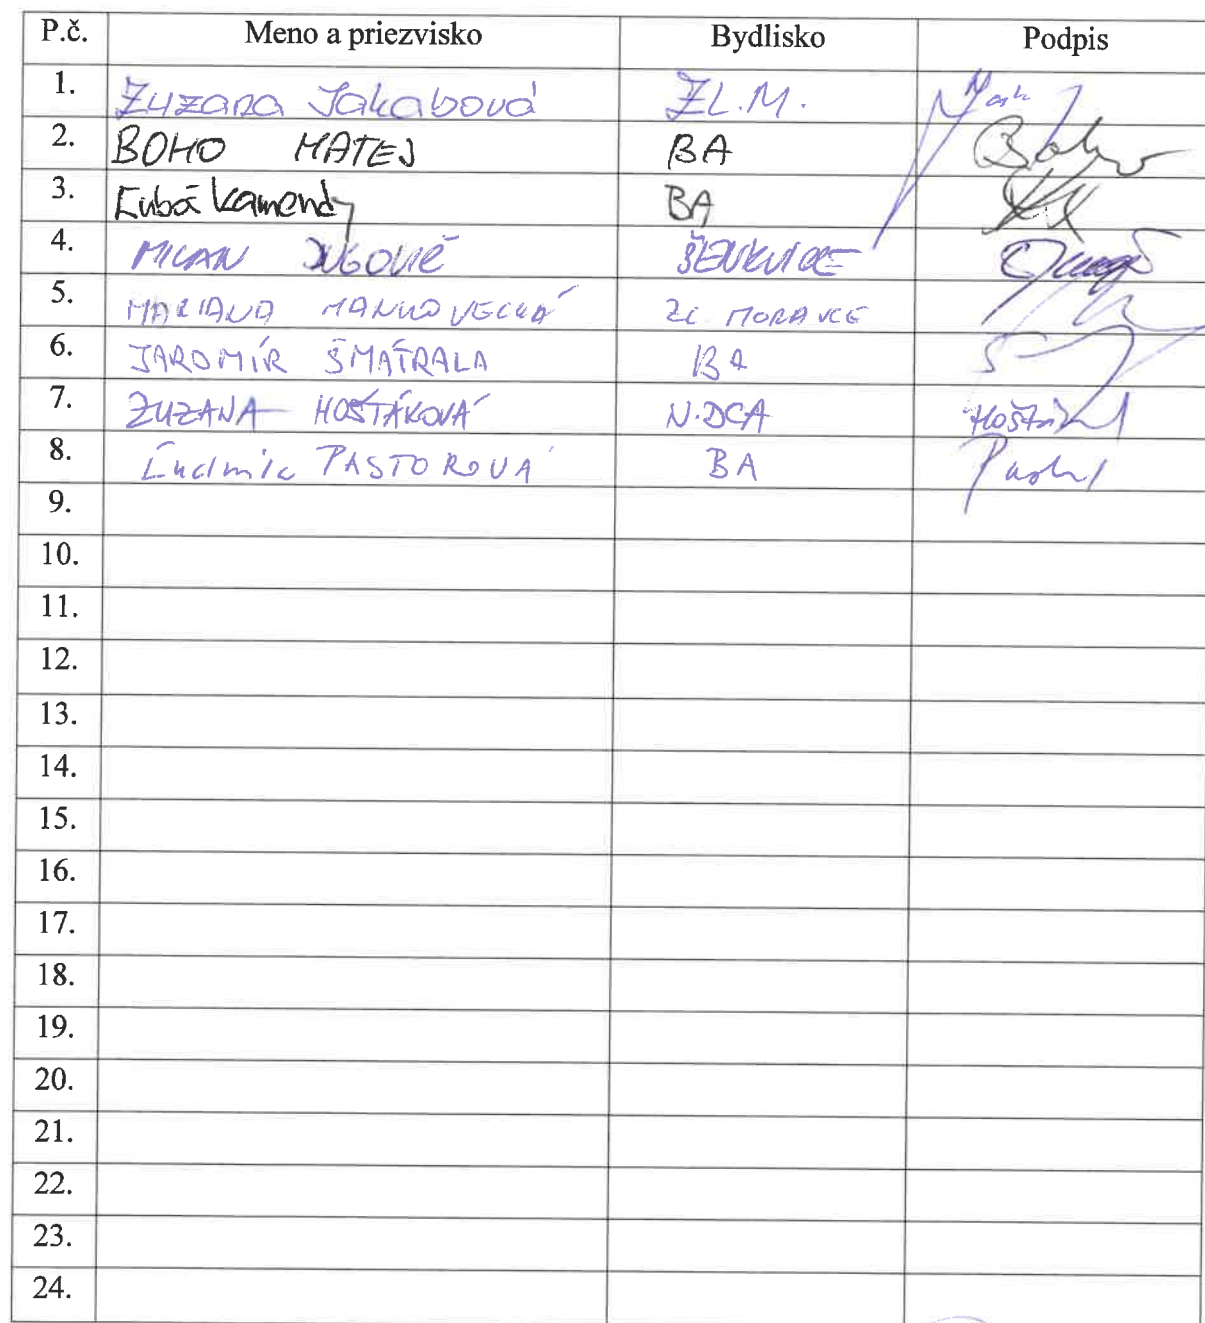 P.č. Meno a priezvisko Bydlisko Podpis
1. Zuzana Jakabová ZL.M.
2. BOHO MATEJ BA Boho
3. Ľubá Kamendy BA
4. MILAN ŠENKVICE
5. MARIANA ZL. MORAVCE
6. JAROMÍR ŠMATRALA BA
7. ZUZANA HOŠTÁKOVÁ N.DCA
8. Ľudmila PASTOROVÁ BA
9.
10.
11.
12.
13.
14.
15.
16.
17.
18.
19.
20.
21.
22.
23.
24.